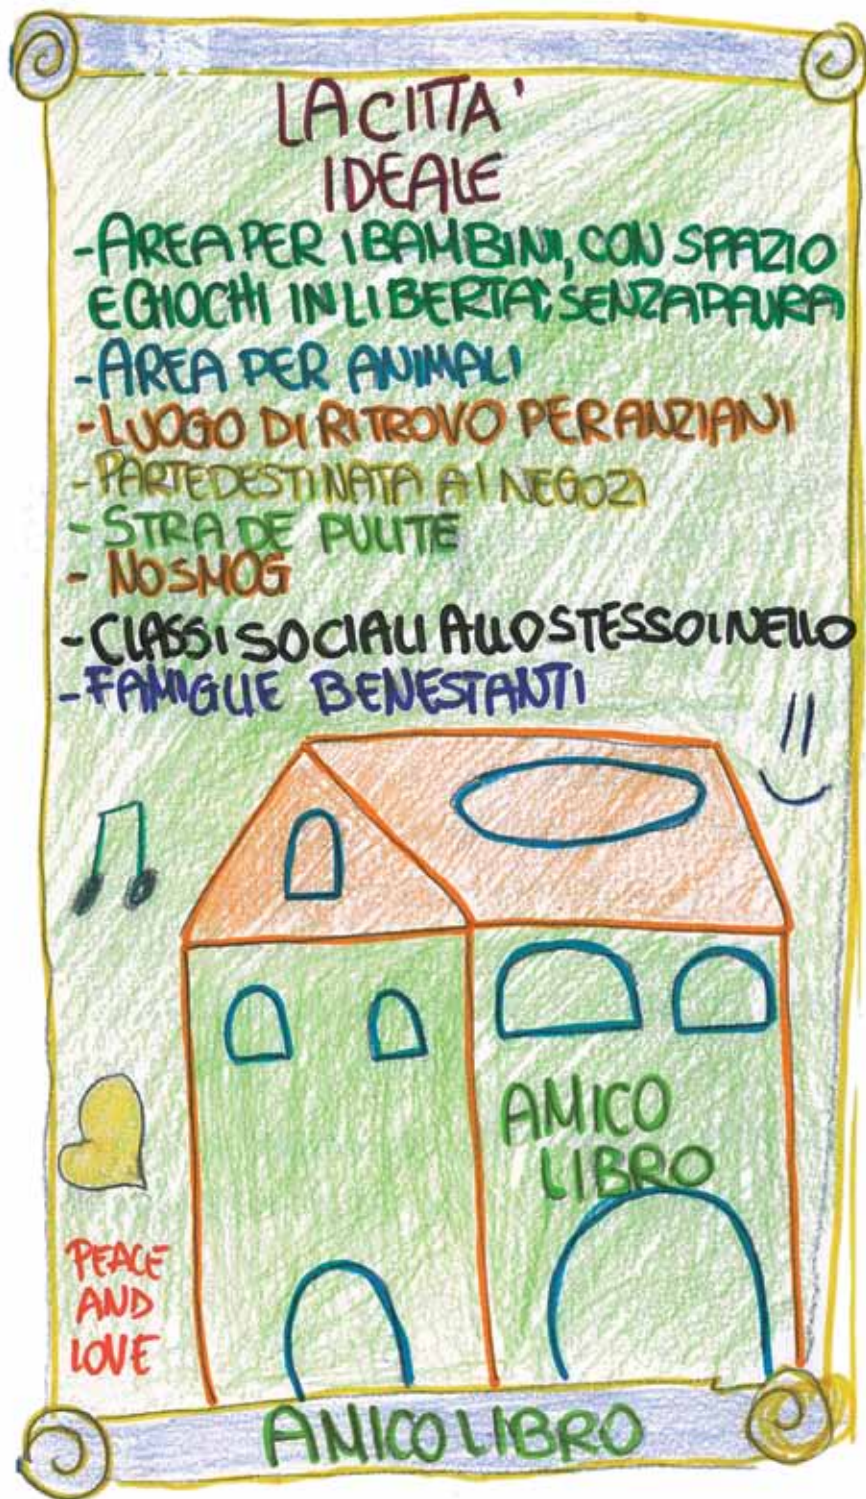 LA CITTA'
IDEALE
- AREA PER I BAMBINI, CON SPAZIO
E GIOCHI IN LIBERTA', SENZA PAURA
- AREA PER ANIMALI
- LUOGO DI RITROVO PER ANZIANI
- PARTE DESTINATA AI NEGOZI
- STRADE PULITE
- NO SMOG
- CLASSI SOCIALI ALLO STESSO LIVELLO
- FAMIGLIE BENESTANTI
AMICO
LIBRO
PEACE
AND
LOVE
AMICO LIBRO